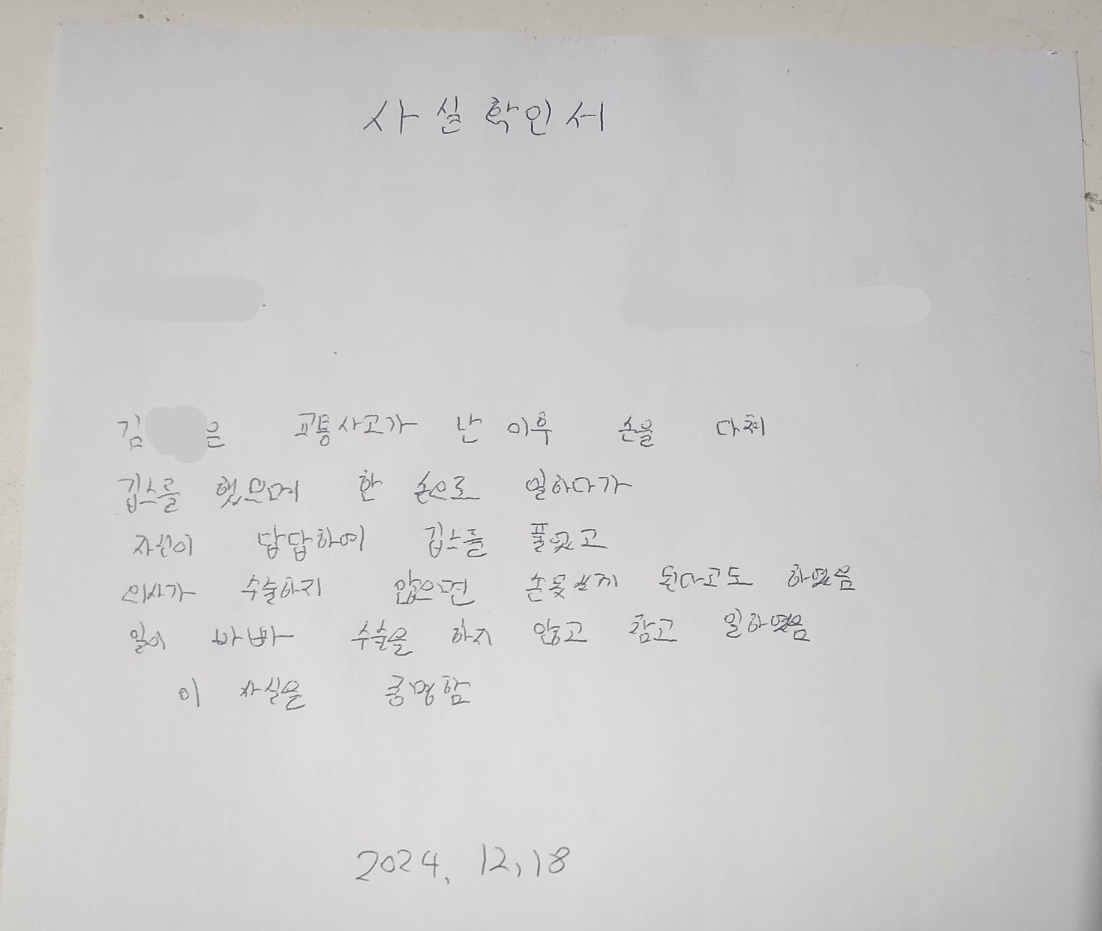 사실확인서
김 은 교통사고가 난 이후 손을 다쳐
깁스를 했으며 한 손으로 일하다가
자신이 답답하여 깁스를 풀었고
의사가 수술하지 않으면 손못쓰게 된다고도 하였음
일이 바빠 수술을 하지 않고 참고 일하였음
이 사실을 증명함
2024. 12, 18